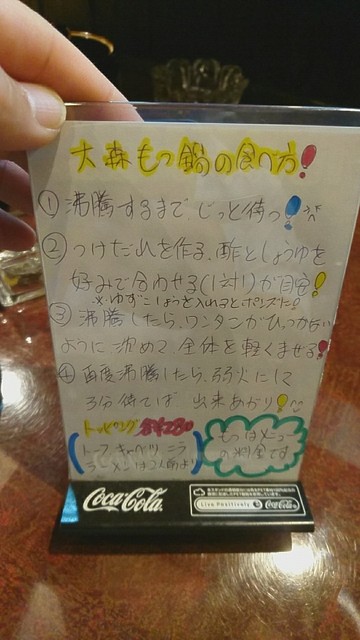 大森もつ鍋の食べ方!
① 沸騰するまでじっと待つ!
② つけだれを作る、酢としょうゆを
好みで合わせる(1対1)が目安!
※ゆずこしょうを入れるとポンズに!
③ 沸騰したら、ワンタンがひっつかない
ように沈めて全体を軽くまぜる!
④ 再度沸騰したら、弱火にして
3分待てば 出来あがり!
トッピング
トーフ キャベツ ニラ
ラーメンは2人前より
もつはメニュー
の料金です
Coca-Cola
Live Positively
Coca-Cola